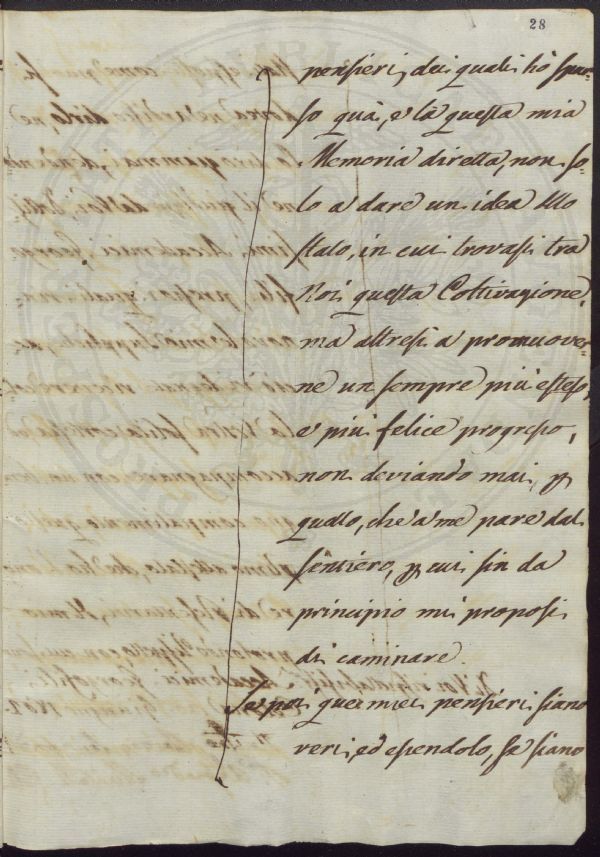 28
pensieri, dei quali hò spar=
so quà, e là questa mia
Memoria diretta, non so=
lo a dare un idea dello
stato, in cui trovasi tra
Noi questa Coltivazione,
ma altresì a promuover=
ne un sempre più esteso,
e più felice progresso,
non deviando mai, p
quello, che a me pare dal
sentiero, p cui sin da
principio mi proposi
di caminare.
Se poi quei miei pensieri siano
veri, ed essendolo, se siano